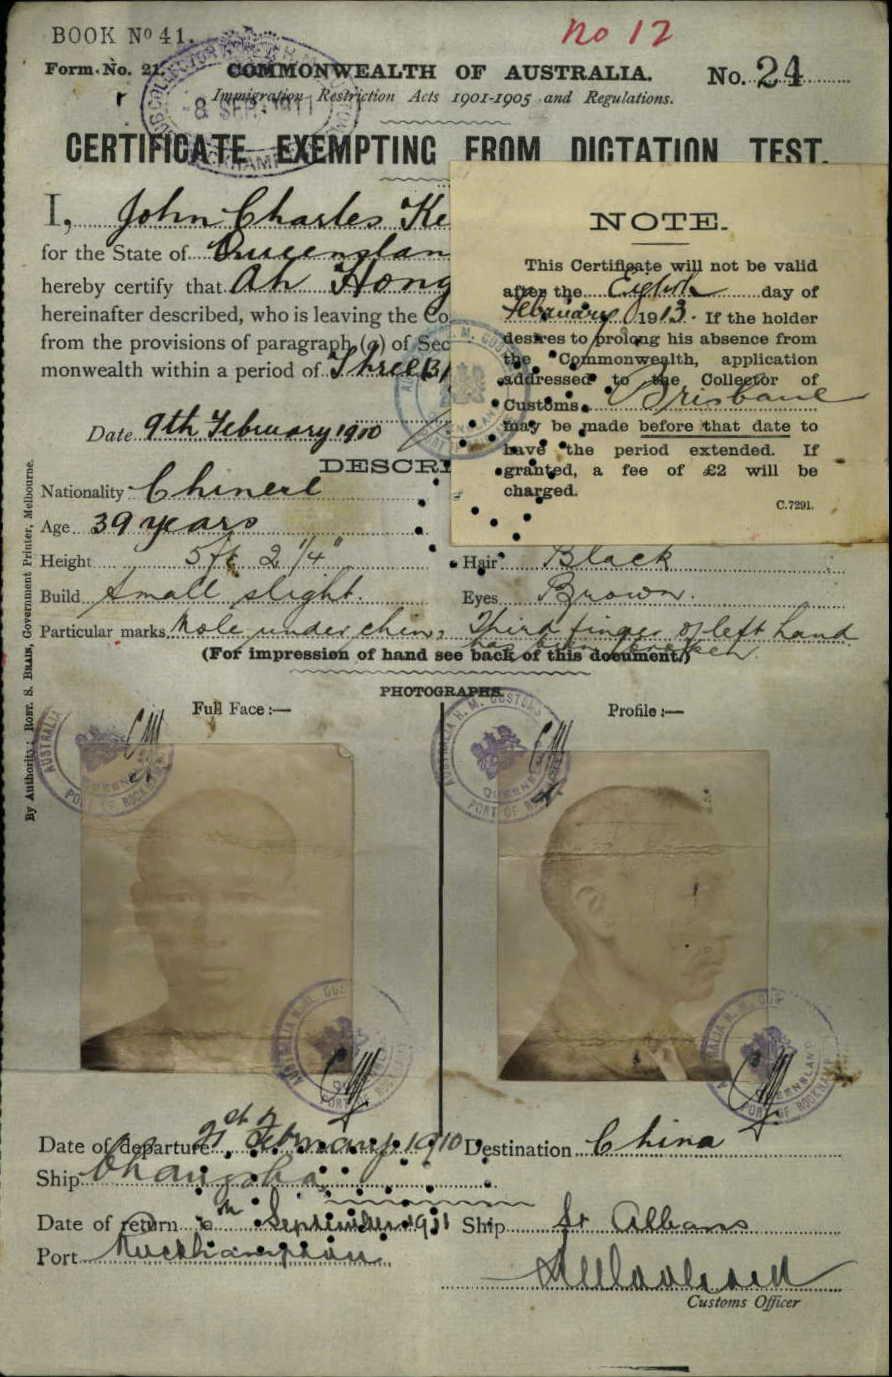 BOOK Nº 41.
No 12
Form No. 21.
COMMONWEALTH OF AUSTRALIA.
No. 24
Immigration Restriction Acts 1901-1905 and Regulations.
8 SEP. 1911
CERTIFICATE EXEMPTING FROM DICTATION TEST.
I, John Charles Ke
for the State of Queenslan
hereby certify that Ah Hong
hereinafter described, who is leaving the Co
from the provisions of paragraph (a) of Sec
monwealth within a period of Three
Date 9th February 1910
DESCRI
NOTE.
This Certificate will not be valid
after the Eighth day of
February 1913. If the holder
desires to prolong his absence from
the Commonwealth, application
addressed to the Collector of
Customs, Brisbane
may be made before that date to
have the period extended. If
granted, a fee of £2 will be
charged.
C.7291.
Nationality Chinese
Age 39 years
Height 5ft 2 1/4"
Hair Black
Build Small slight.
Eyes Brown.
Particular marks Mole under chin, Third finger of left hand
has been broken.
(For impression of hand see back of this document.)
PHOTOGRAPHS.
Full Face:—
Profile:—
AUSTRALIA H. M. CUSTOMS
QUEENSLAND
PORT OF ROCKHAMPTON
CM
By Authority: ROBT. S. BRAIN, Government Printer, Melbourne.
Date of departure 21st February 1910
Destination China
Ship Changsha
Date of return September 1911
Ship St Albans
Port Rockhampton
Customs Officer